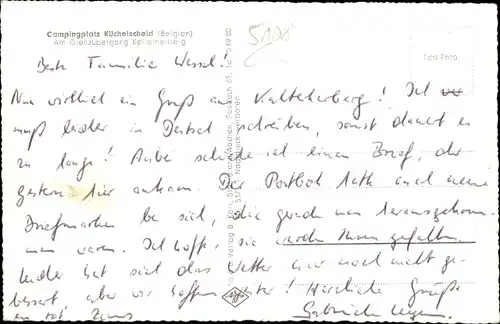 Campingplatz Küchelscheid (Belgien)
Am Grenzübergang Kalterherberg
5108
Echt Foto
Beste Familie Wessel!
Nun wirklich ein Gruß aus Kalterherberg! Ich
muß leider in Deutsch schreiben, sonst dauert es
zu lange! Anbei schicke ich einen Brief, der
gestern hier ankam. Der Postbote hatte auch neue
Briefmarken bei sich, die gerade neu herausgekom-
men waren. Ich hoffe, sie werden Ihnen gefallen.
Leider hat sich das Wetter noch nicht ge-
bessert, aber wir hoffen weiter! Herzliche Grüße
Gabriele
Agfa